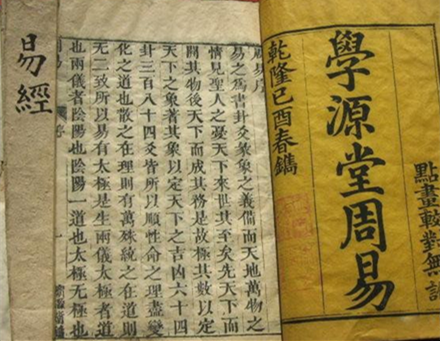 點畫較對無訛
學源堂周易
乾隆己酉春鐫
周易序
易之為書卦爻彖象之義備而天地萬物之
情見聖人之憂天下來世其至矣先天下而
開其物後天下而成其務是故極其數以定
天下之象著其象以定天下之吉凶六十四
卦三百八十四爻皆所以順性命之理盡變
化之道也散之在理則有萬殊統之在道則
無二致所以易有太極是生兩儀太極者道
也兩儀者陰陽也陰陽一道也太極無極也
序
易經